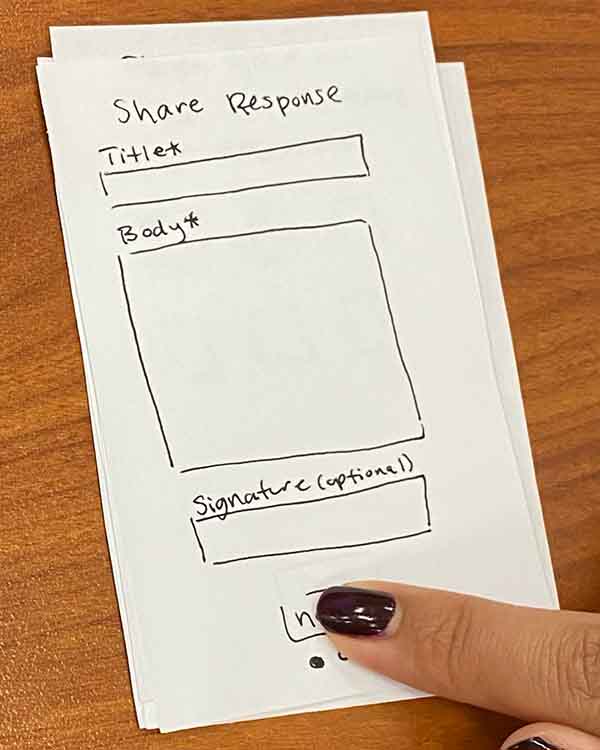 Share Response
Title*
Body*
Signature (optional)